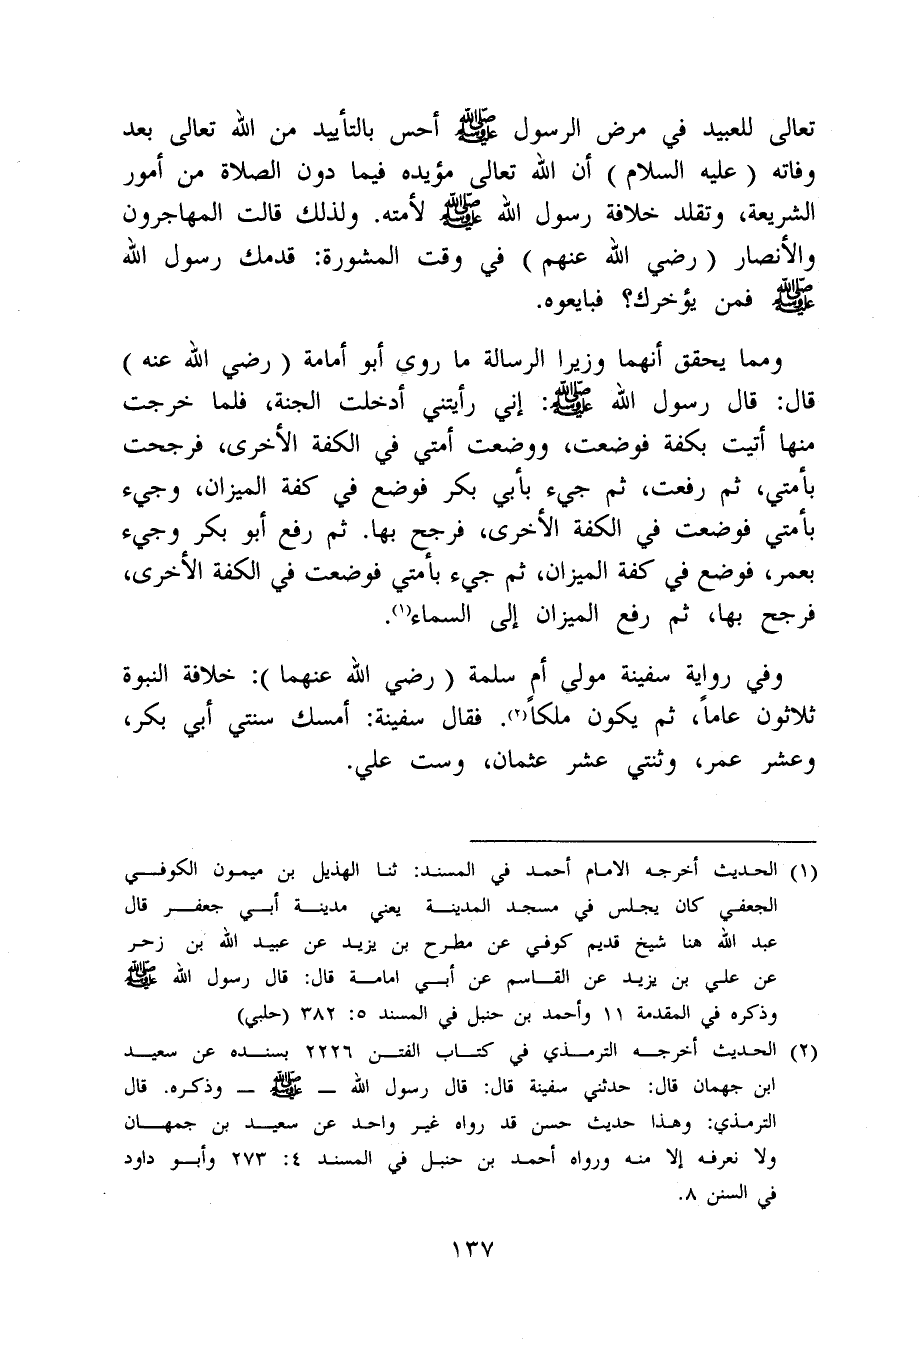 تعالى للعبيد في مرض الرسول ﷺ أحس بالتأييد من الله تعالى بعد
وفاته ( عليه السلام ) أن الله تعالى مؤيده فيما دون الصلاة من أمور
الشريعة، وتقلد خلافة رسول الله ﷺ لأمته. ولذلك قالت المهاجرون
والأنصار ( رضي الله عنهم ) في وقت المشورة: قدمك رسول الله
ﷺ فمن يؤخرك؟ فبايعوه.
ومما يحقق أنهما وزيرا الرسالة ما روى أبو أمامة ( رضي الله عنه )
قال: قال رسول الله ﷺ: إني رأيتني أدخلت الجنة، فلما خرجت
منها أتيت بكفة فوضعت، ووضعت أمتي في الكفة الأخرى، فرجحت
بأمتي، ثم رفعت، ثم جيء بأبي بكر فوضع في كفة الميزان، وجيء
بأمتي فوضعت في الكفة الأخرى، فرجح بها. ثم رفع أبو بكر وجيء
بعمر، فوضع في كفة الميزان، ثم جيء بأمتي فوضعت في الكفة الأخرى،
فرجح بها، ثم رفع الميزان إلى السماء(١).
وفي رواية سفينة مولى أم سلمة ( رضي الله عنهما ): خلافة النبوة
ثلاثون عاماً، ثم يكون ملكاً(٢). فقال سفينة: أمسك سنتي أبي بكر،
وعشر عمر، وثنتي عشر عثمان، وست علي.
(١) الحديث أخرجه الامام أحمد في المسند: ثنا الهذيل بن ميمون الكوفي
الجعفي كان يجلس في مسجد المدينة يعني مدينة أبي جعفر قال
عبد الله هنا شيخ قديم كوفي عن مطرح بن يزيد عن عبيد الله بن زحر
عن علي بن يزيد عن القاسم عن أبي امامة قال: قال رسول الله ﷺ
وذكره في المقدمة ١١ وأحمد بن حنبل في المسند ٥: ٣٨٢ (حلبي)
(٢) الحديث أخرجه الترمذي في كتاب الفتن ٢٢٢٦ بسنده عن سعيد
ابن جهمان قال: حدثني سفينة قال: قال رسول الله ــ ﷺ ــ وذكره. قال
الترمذي: وهذا حديث حسن قد رواه غير واحد عن سعيد بن جمهان
ولا نعرفه إلا منه ورواه أحمد بن حنبل في المسند ٤: ٢٧٣ وأبو داود
في السنن ٨.
١٣٧